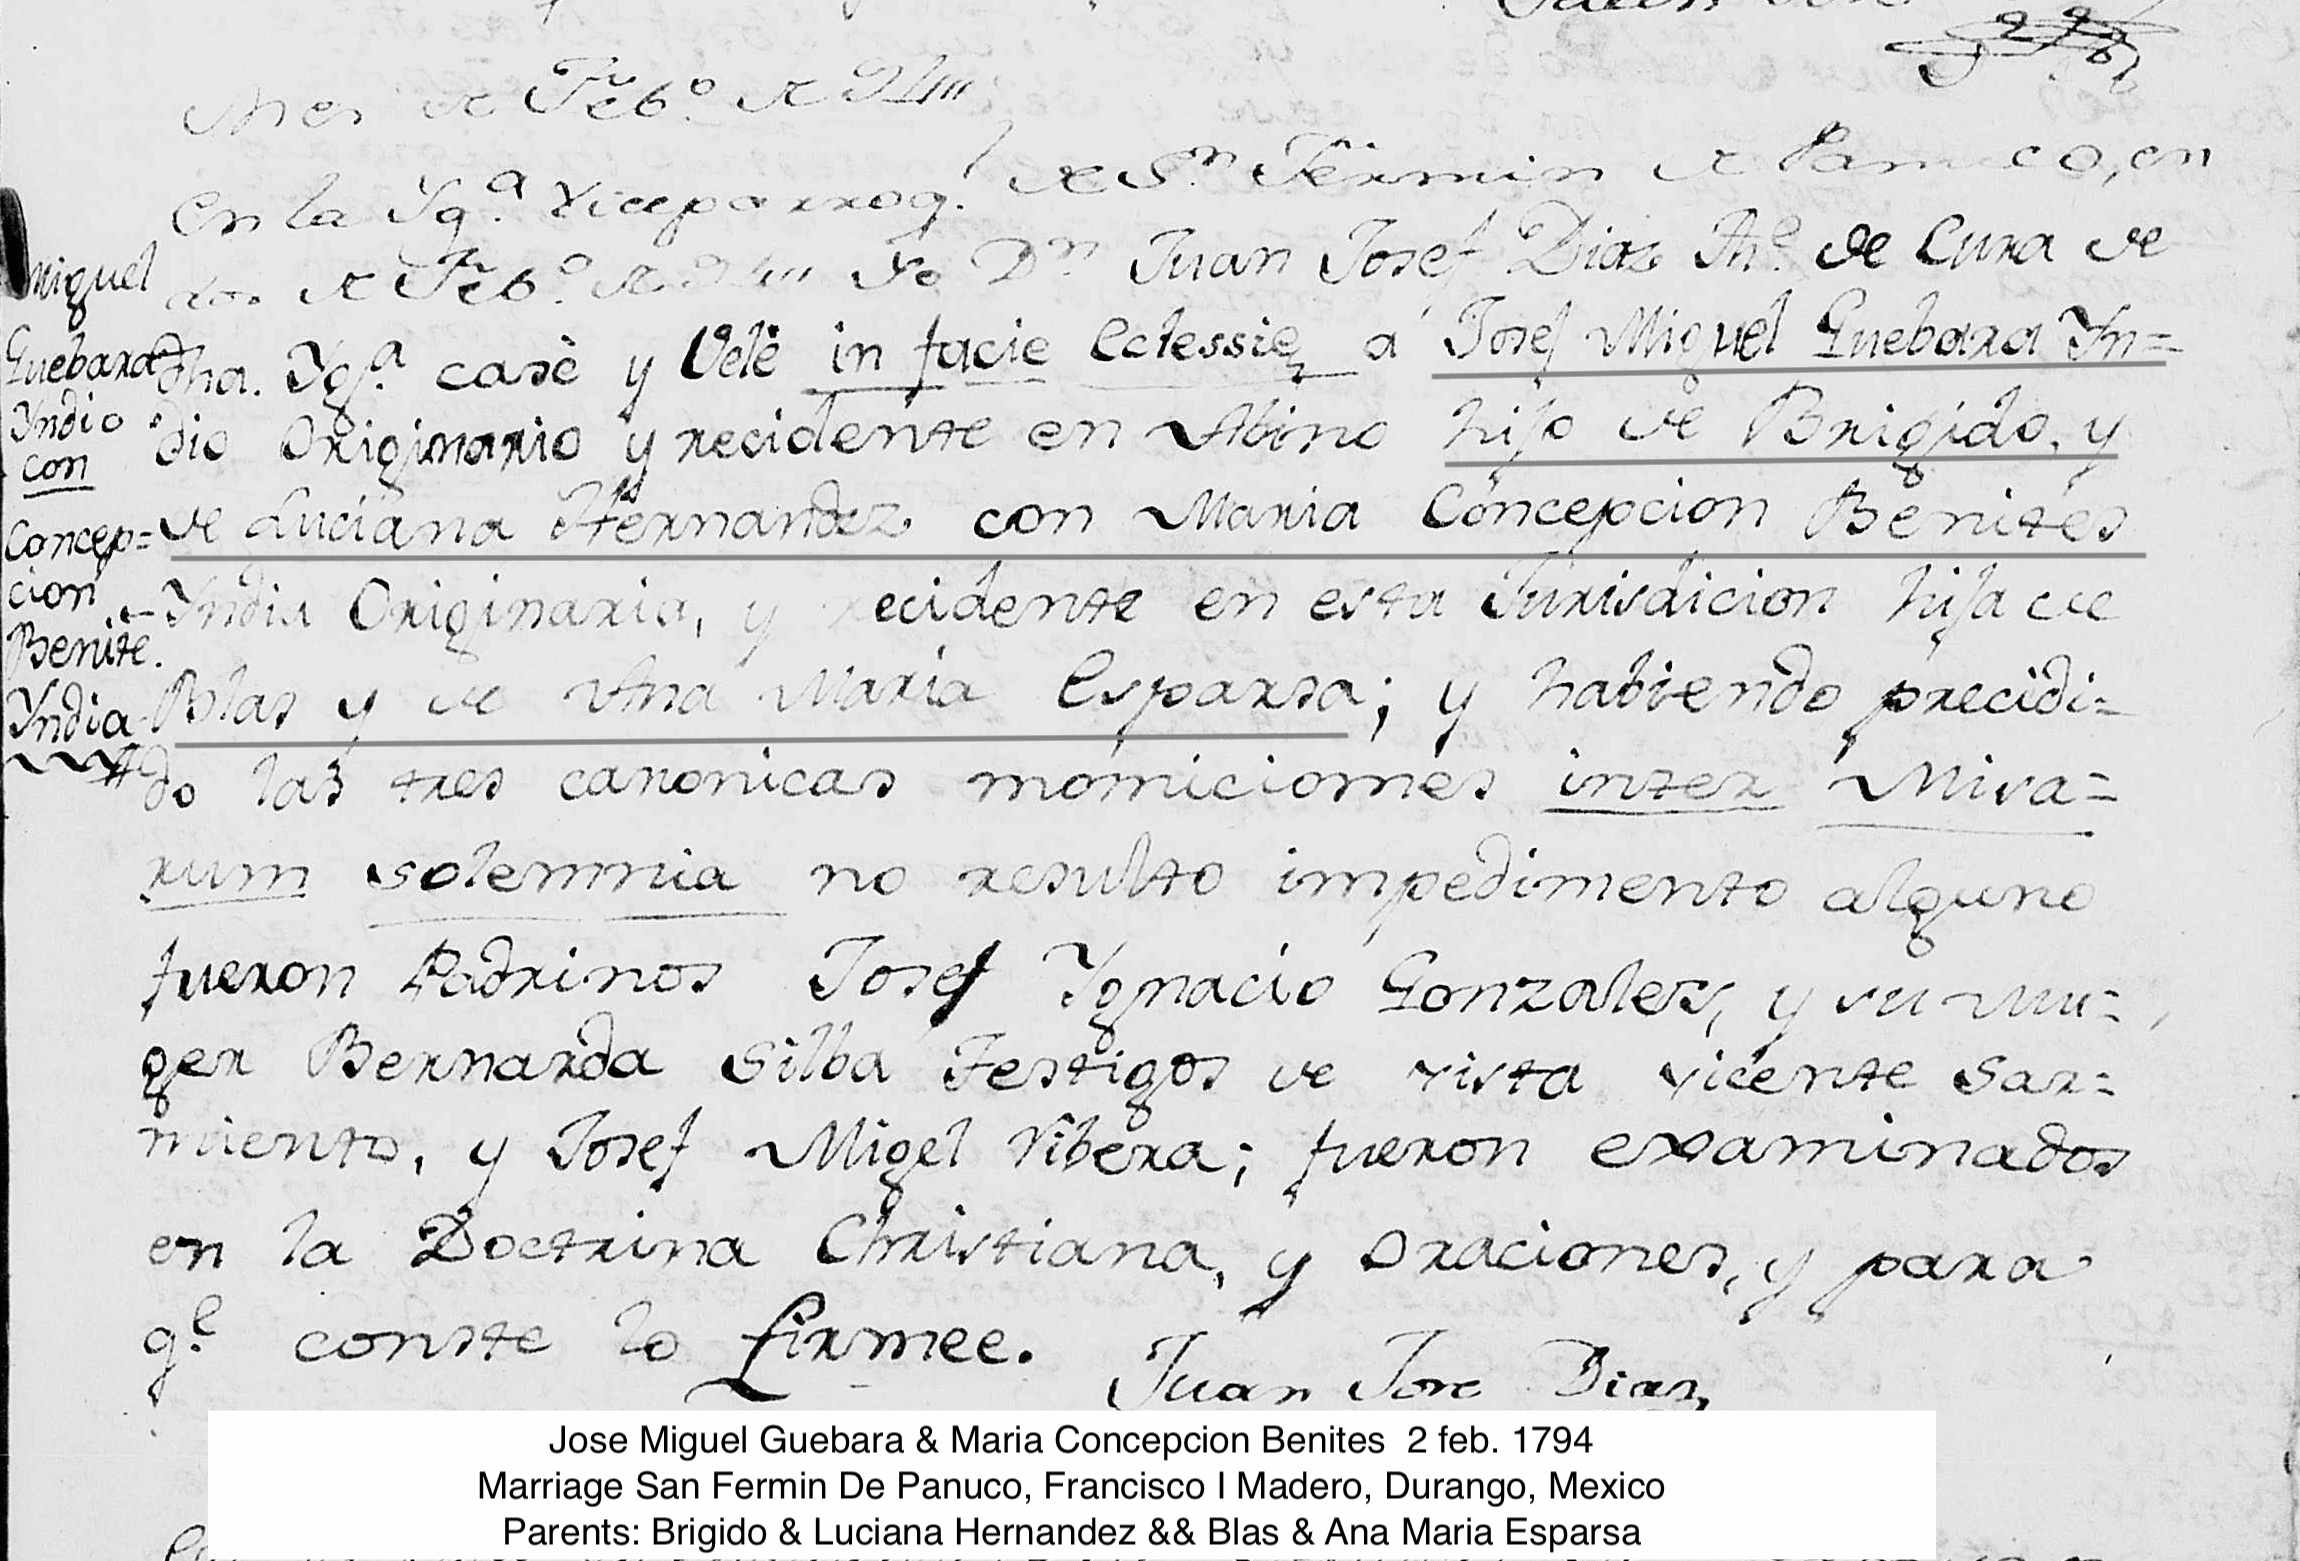 Mes de Feb.o de
En la Yg.a Viceparroq.l de S.n Fermin de Panuco, en
dos de Feb.o de Yo D.n Juan Josef Diaz Th.e de Cura de
dha. Yg.a casè y Velè in facie Eclessie a Josef Miguel Guebara Yn=
dio Originario y recidente en Abino hijo de Brigido, y
de Luciana Hernandez con Maria Concepcion Benites
Yndia Originaria, y recidente en esta Jurisdicion hija de
Blas y de Ana Maria Esparsa; y habiendo precidi=
do las tres canonicas moniciones inter Misa=
rum solemnia no resulto impedimento alguno
fueron Padrinos Josef Ygnacio Gonzales, y su mu=
ger Bernarda Silba Testigos de vista Vicente Sar=
miento, y Josef Migel Ribera; fueron examinados
en la Doctrina Christiana, y Oraciones, y para
q.e conste lo firmee.
Juan Jose Diaz
Miguel
Guebara
Yndio
con
Concep=
cion
Benite.
Yndia
Jose Miguel Guebara & Maria Concepcion Benites 2 feb. 1794
Marriage San Fermin De Panuco, Francisco I Madero, Durango, Mexico
Parents: Brigido & Luciana Hernandez && Blas & Ana Maria Esparsa